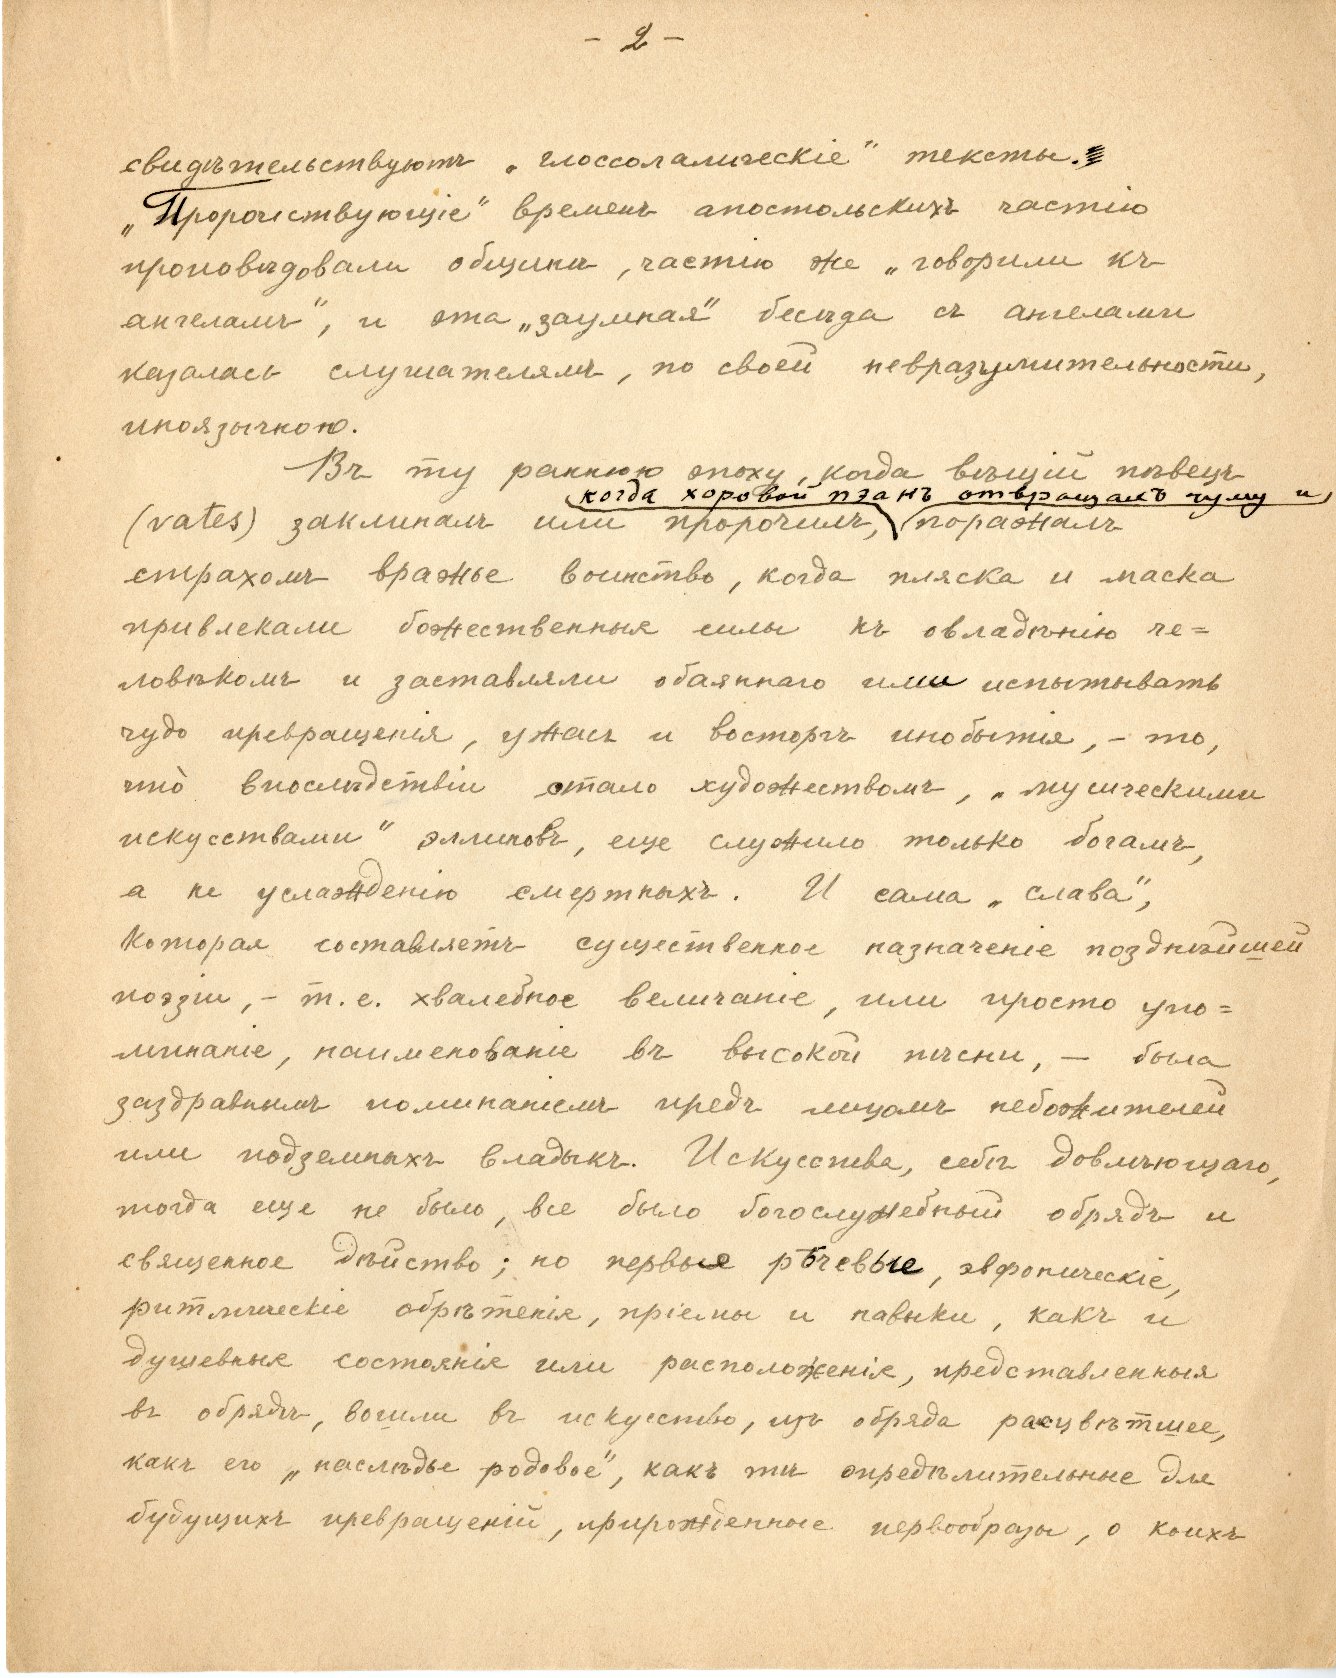 - 2 -
свидѣтельствуютъ „глоссолалическіе“ тексты.
„Пророчествующіе“ временъ апостольскихъ частію
проповѣдовали общинѣ, частію же „говорили къ
ангеламъ“, и эта „заумная“ бесѣда съ ангелами
казалась слушателямъ, по своей невразумительности,
иноязычною.
Въ ту раннюю эпоху, когда вѣщій пѣвецъ
когда хоровой пэанъ отвращалъ чуму и
(vates) заклиналъ или пророчилъ, поражалъ
страхомъ вражье воинство, когда пляска и маска
привлекали божественныя силы къ овладѣнію че=
ловѣкомъ и заставляли обаяннаго ими испытывать
чудо превращенія, ужасъ и восторгъ инобытія, - то,
что̀ впослѣдствіи стало художествомъ, „мусическими
искусствами“ эллиновъ, еще служило только богамъ,
а не услажденію смертныхъ. И сама „слава“,
которая составляетъ существенное назначеніе позднѣйшей
поэзіи, - т. е. хвалебное величаніе, или просто упо=
минаніе, наименованіе въ высокой пѣсни, — была
заздравнымъ поминаніемъ предъ лицомъ небожителей
или подземныхъ владыкъ. Искусства, себѣ довлѣющаго,
тогда еще не было, все было богослужебный обрядъ и
священное дѣйство; но первые рѣчевые, эвфоническіе,
ритмическіе обрѣтенія, пріемы и навыки, какъ и
душевныя состоянія или расположенія, представленныя
въ обрядѣ, вошли въ искусство, изъ обряда расцвѣтшее,
какъ его „наслѣдье родовое“, какъ тѣ опредѣлительные для
будущихъ превращеній, прирожденные первообразы, о коихъ